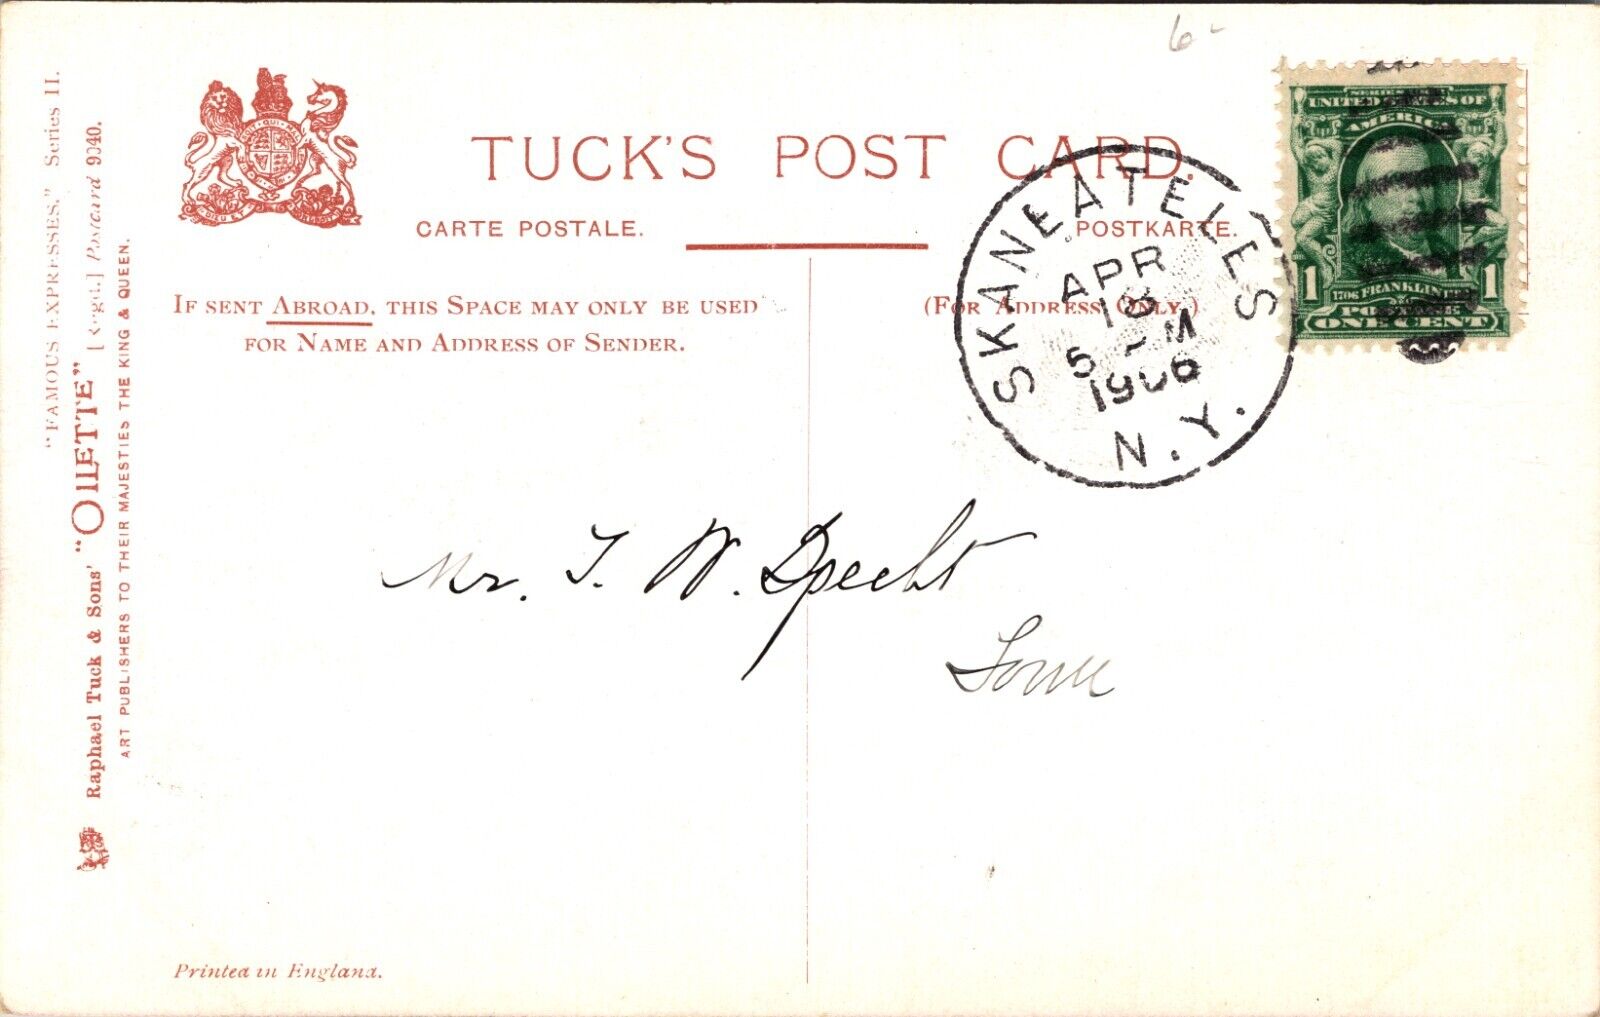 6-
TUCK'S POST CARD.
CARTE POSTALE.
POSTKARTE.
IF SENT ABROAD, THIS SPACE MAY ONLY BE USED
FOR NAME AND ADDRESS OF SENDER.
(FOR ADDRESS ONLY.)
"FAMOUS EXPRESSES." Series II.
Raphael Tuck & Sons' "OILETTE" [Regd.] Postcard 9040.
ART PUBLISHERS TO THEIR MAJESTIES THE KING & QUEEN.
SKANEATELES
APR
18
5 PM
1906
N.Y.
SERIES 1902
UNITED STATES OF
AMERICA
1 1
1706 FRANKLIN
POSTAGE
ONE CENT
DIEU ET MON DROIT
Mr. T. W. Specht
Town
Printed in England.